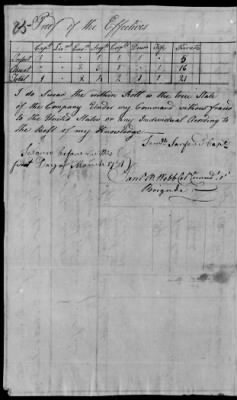 Proof of the Effectives
Capt Lieut Ens Sergt Corpl Drum Fife Private
Total 21
I do Swear the within Roll is the true State
of the Company Under my Command without fraud
to the United States or any Individual According to
the best of my Knowledge
Saml Sanford Capt
Sworn before me this
first Day of March 1781
Saml B Webb Col Comd
Brigade